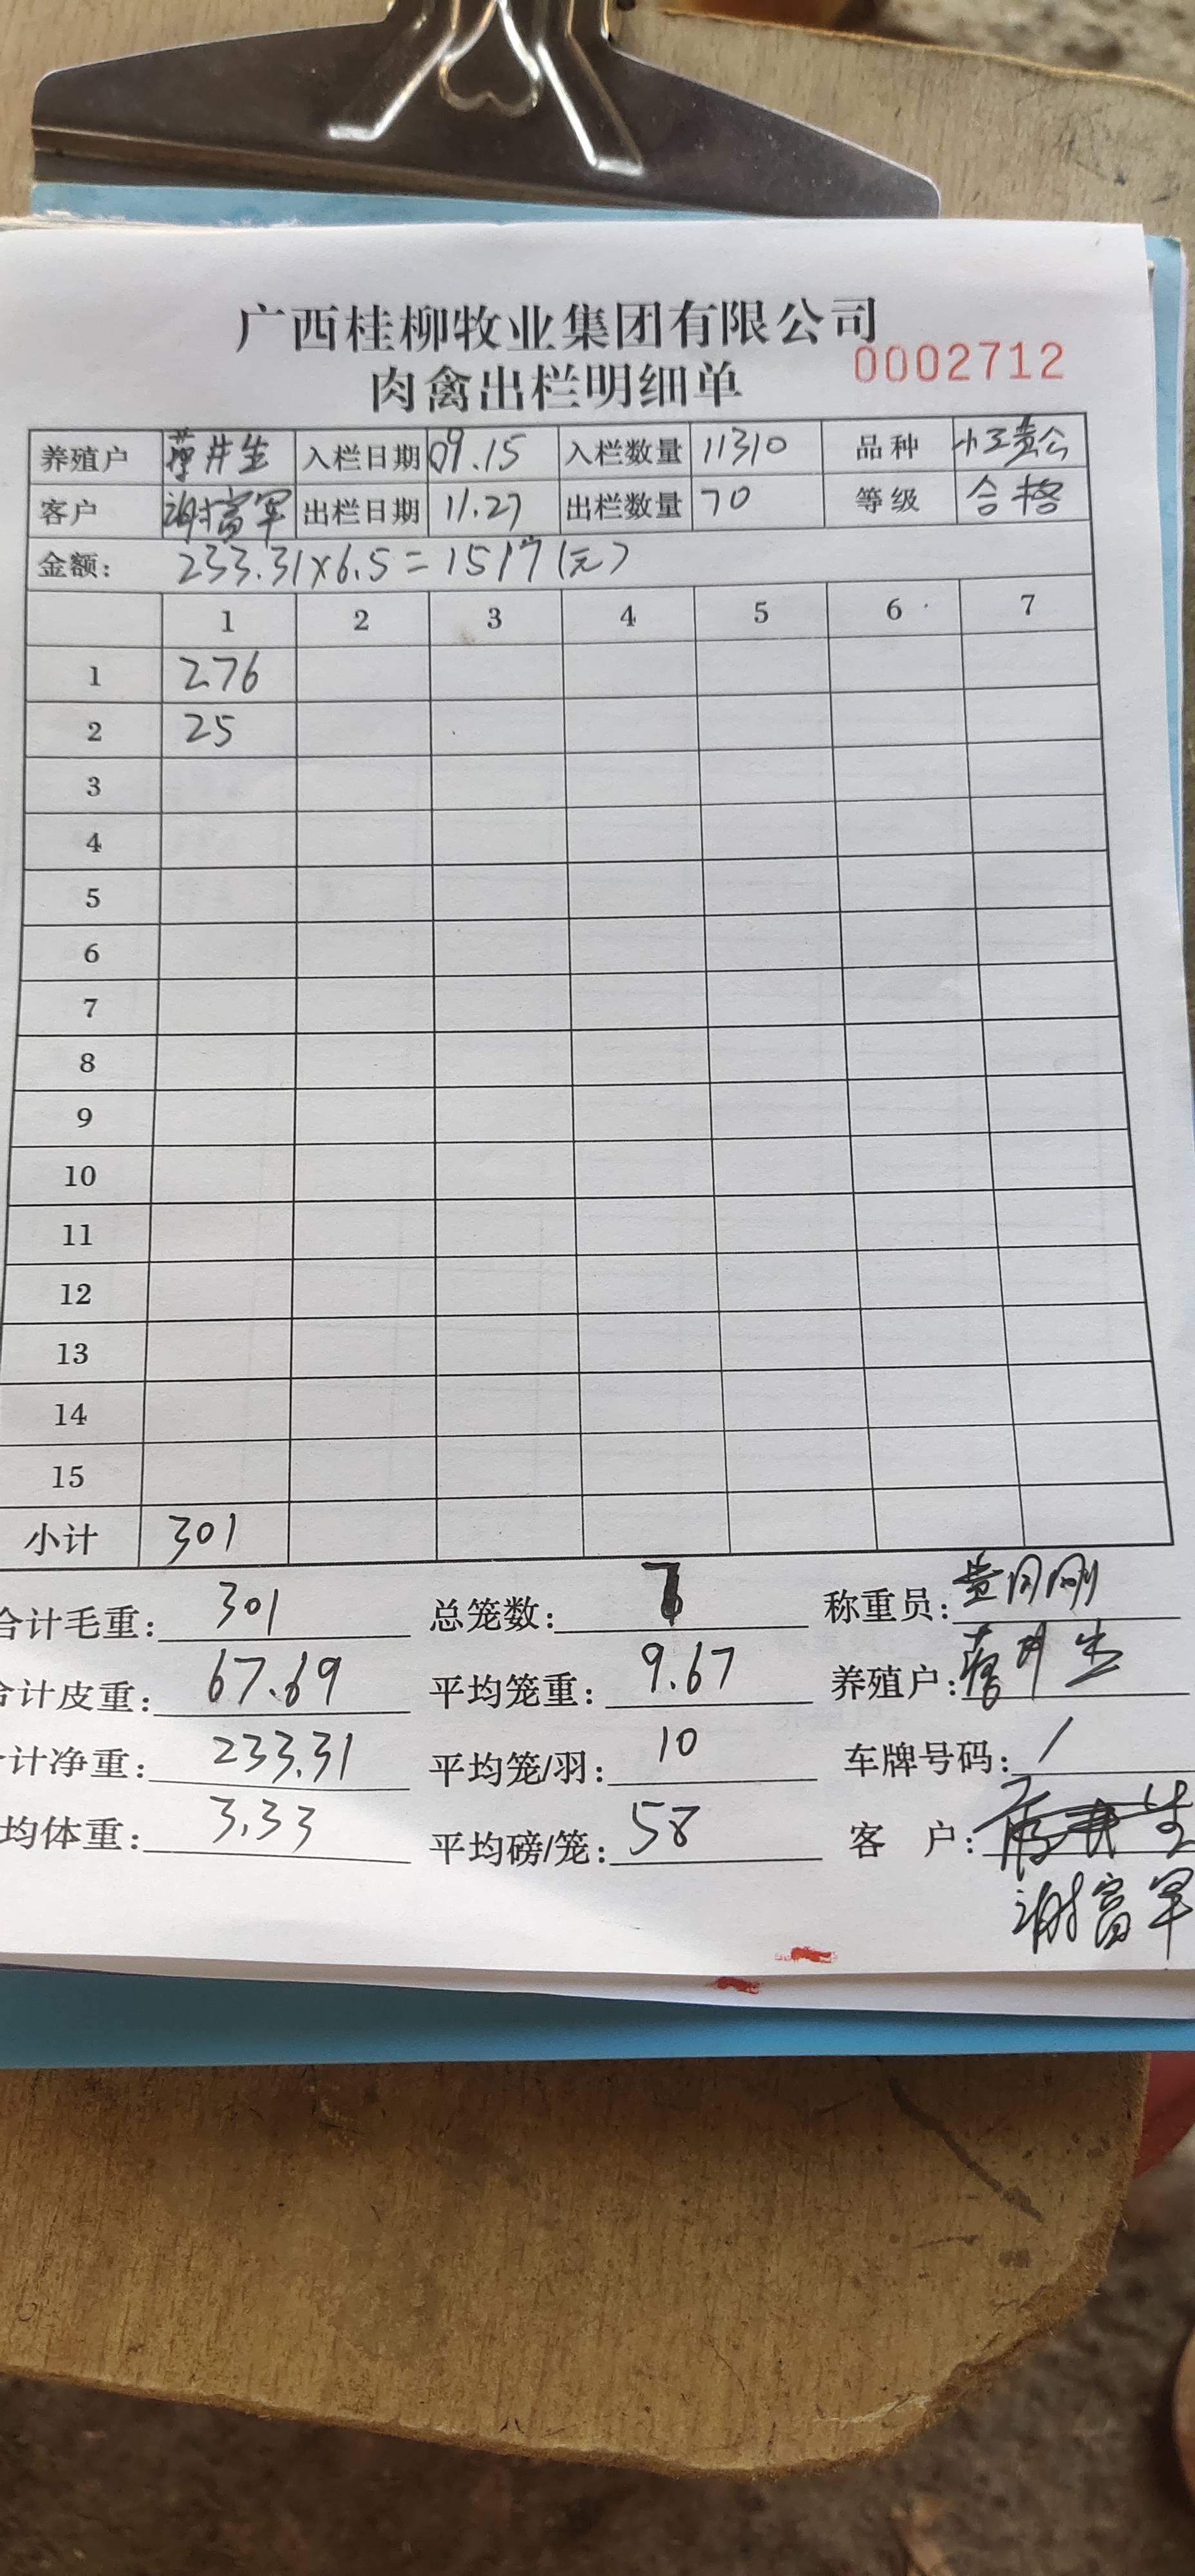 广西桂柳牧业集团有限公司
肉禽出栏明细单 0002712
养殖户 井生 入栏日期 09.15 入栏数量 11310 品种
客户 谢富军 出栏日期 11.27 出栏数量 70 等级 合格
金额: 233.31×6.5=1517(元)
1 2 3 4 5 6 7
1 276
2 25
3
4
5
6
7
8
9
10
11
12
13
14
15
小计 301
合计毛重: 301 总笼数: 7 称重员:
合计皮重: 67.69 平均笼重: 9.67 养殖户:
计净重: 233.31 平均笼/羽: 10 车牌号码: /
均体重: 3.33 平均磅/笼: 58 客 户:
谢富军